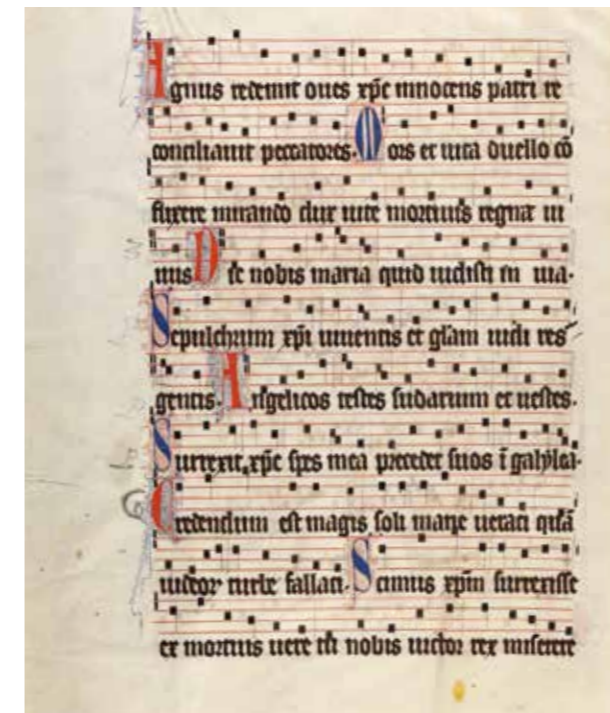 Agnus redemit oues xp̄c innocens patri re
conciliauit peccatores. Mors et uita duello cō
flixere mirando dux uite mortuus regnat ui
uus Dic nobis maria quid uidisti in uia.
Sepulchrum xp̄i uiuentis et glām uidi res
gentis. Angelicos testes sudarium et uestes.
Surrexit xp̄c spes mea precedet suos ī galylea.
Credendum est magis soli marie ueraci quā
iudeor turbe fallaci. Scimus xp̄m surrexisse
ex mortuis uere tu nobis uictor rex miserere